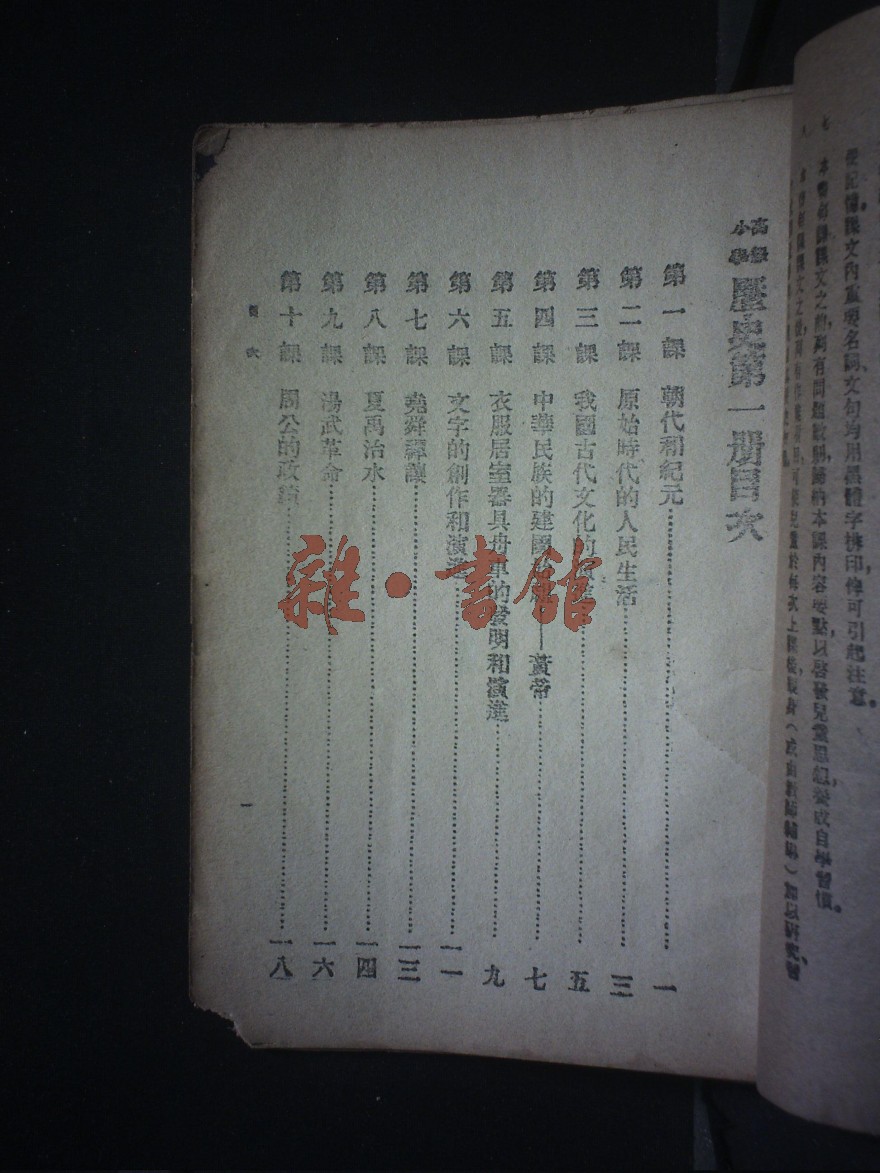 便記憶。課文內重要名詞、文句均用黑體字排印俾可引起注意。
七 本書每課課文之前有問題數則歸納本課內容要點以啓發兒童思想養成自學習慣。
高級小學 歷史第一册目次
第一課 朝代和紀元 一
第二課 原始時代的人民生活 三
第三課 我國古代文化的演進 五
第四課 中華民族的建國 — 黃帝 七
第五課 衣服居室器具舟車的發明和演進 九
第六課 文字的創作和演進 一一
第七課 堯舜禪讓 一三
第八課 夏禹治水 一四
第九課 湯武革命 一六
第十課 周公的政績 一八
目次
一
雜·書館